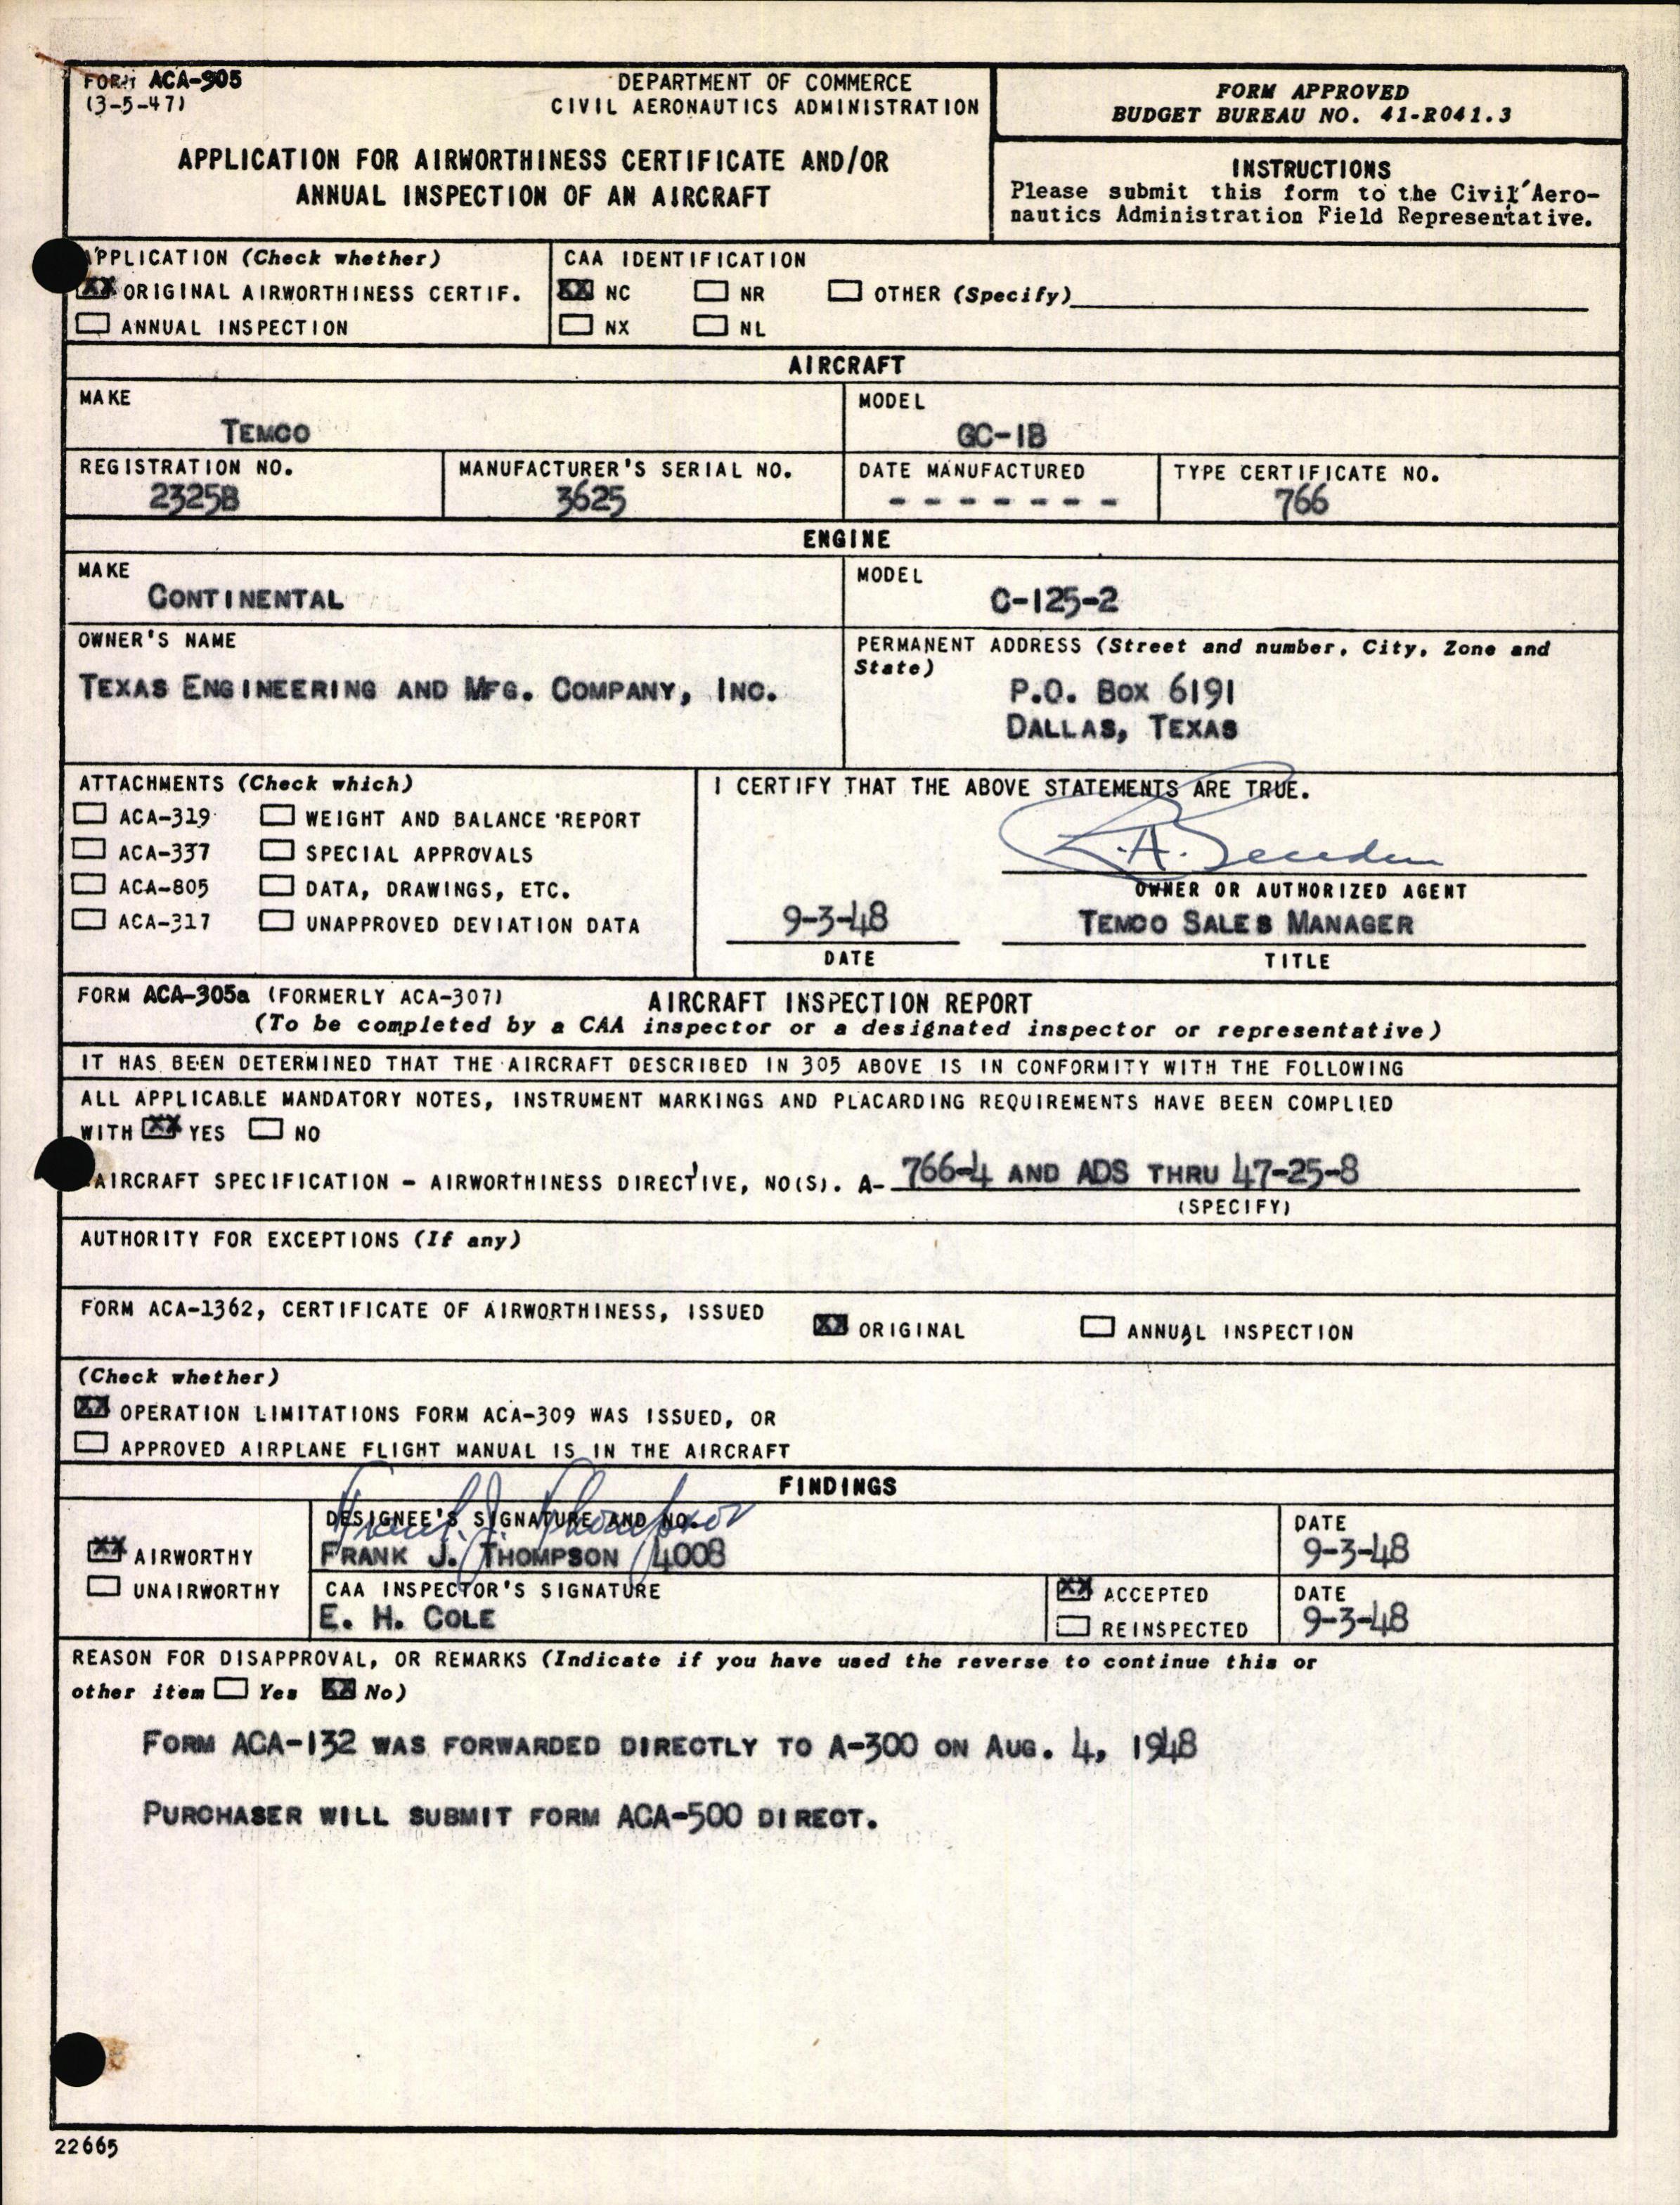 FORM ACA-305
(3-5-47)
DEPARTMENT OF COMMERCE
CIVIL AERONAUTICS ADMINISTRATION
APPLICATION FOR AIRWORTHINESS CERTIFICATE AND/OR
ANNUAL INSPECTION OF AN AIRCRAFT
FORM APPROVED
BUDGET BUREAU NO. 41-R041.3
INSTRUCTIONS
Please submit this form to the Civil Aero-
nautics Administration Field Representative.
APPLICATION (Check whether)
XX ORIGINAL AIRWORTHINESS CERTIF.
ANNUAL INSPECTION
CAA IDENTIFICATION
XX NC NR OTHER (Specify)
NX NL
AIRCRAFT
MAKE
TEMCO
MODEL
GC-1B
REGISTRATION NO.
2325B
MANUFACTURER'S SERIAL NO.
3625
DATE MANUFACTURED
- - - - - - -
TYPE CERTIFICATE NO.
766
ENGINE
MAKE
CONTINENTAL
MODEL
C-125-2
OWNER'S NAME
TEXAS ENGINEERING AND MFG. COMPANY, INC.
PERMANENT ADDRESS (Street and number, City, Zone and
State)
P.O. BOX 6191
DALLAS, TEXAS
ATTACHMENTS (Check which)
ACA-319 WEIGHT AND BALANCE REPORT
ACA-337 SPECIAL APPROVALS
ACA-805 DATA, DRAWINGS, ETC.
ACA-317 UNAPPROVED DEVIATION DATA
I CERTIFY THAT THE ABOVE STATEMENTS ARE TRUE.
OWNER OR AUTHORIZED AGENT
9-3-48
DATE
TEMCO SALES MANAGER
TITLE
FORM ACA-305a (FORMERLY ACA-307)
AIRCRAFT INSPECTION REPORT
(To be completed by a CAA inspector or a designated inspector or representative)
IT HAS BEEN DETERMINED THAT THE AIRCRAFT DESCRIBED IN 305 ABOVE IS IN CONFORMITY WITH THE FOLLOWING
ALL APPLICABLE MANDATORY NOTES, INSTRUMENT MARKINGS AND PLACARDING REQUIREMENTS HAVE BEEN COMPLIED
WITH XX YES NO
AIRCRAFT SPECIFICATION - AIRWORTHINESS DIRECTIVE, NO(S). A- 766-4 AND ADS THRU 47-25-8
(SPECIFY)
AUTHORITY FOR EXCEPTIONS (If any)
FORM ACA-1362, CERTIFICATE OF AIRWORTHINESS, ISSUED XX ORIGINAL ANNUAL INSPECTION
(Check whether)
XX OPERATION LIMITATIONS FORM ACA-309 WAS ISSUED, OR
APPROVED AIRPLANE FLIGHT MANUAL IS IN THE AIRCRAFT
FINDINGS
XX AIRWORTHY
UNAIRWORTHY
DESIGNEE'S SIGNATURE AND NO.
Frank J. Thompson
FRANK J. THOMPSON 4008
DATE
9-3-48
CAA INSPECTOR'S SIGNATURE
E. H. COLE
XX ACCEPTED
REINSPECTED
DATE
9-3-48
REASON FOR DISAPPROVAL, OR REMARKS (Indicate if you have used the reverse to continue this or
other item Yes XX No)
FORM ACA-132 WAS FORWARDED DIRECTLY TO A-300 ON AUG. 4, 1948
PURCHASER WILL SUBMIT FORM ACA-500 DIRECT.
22665